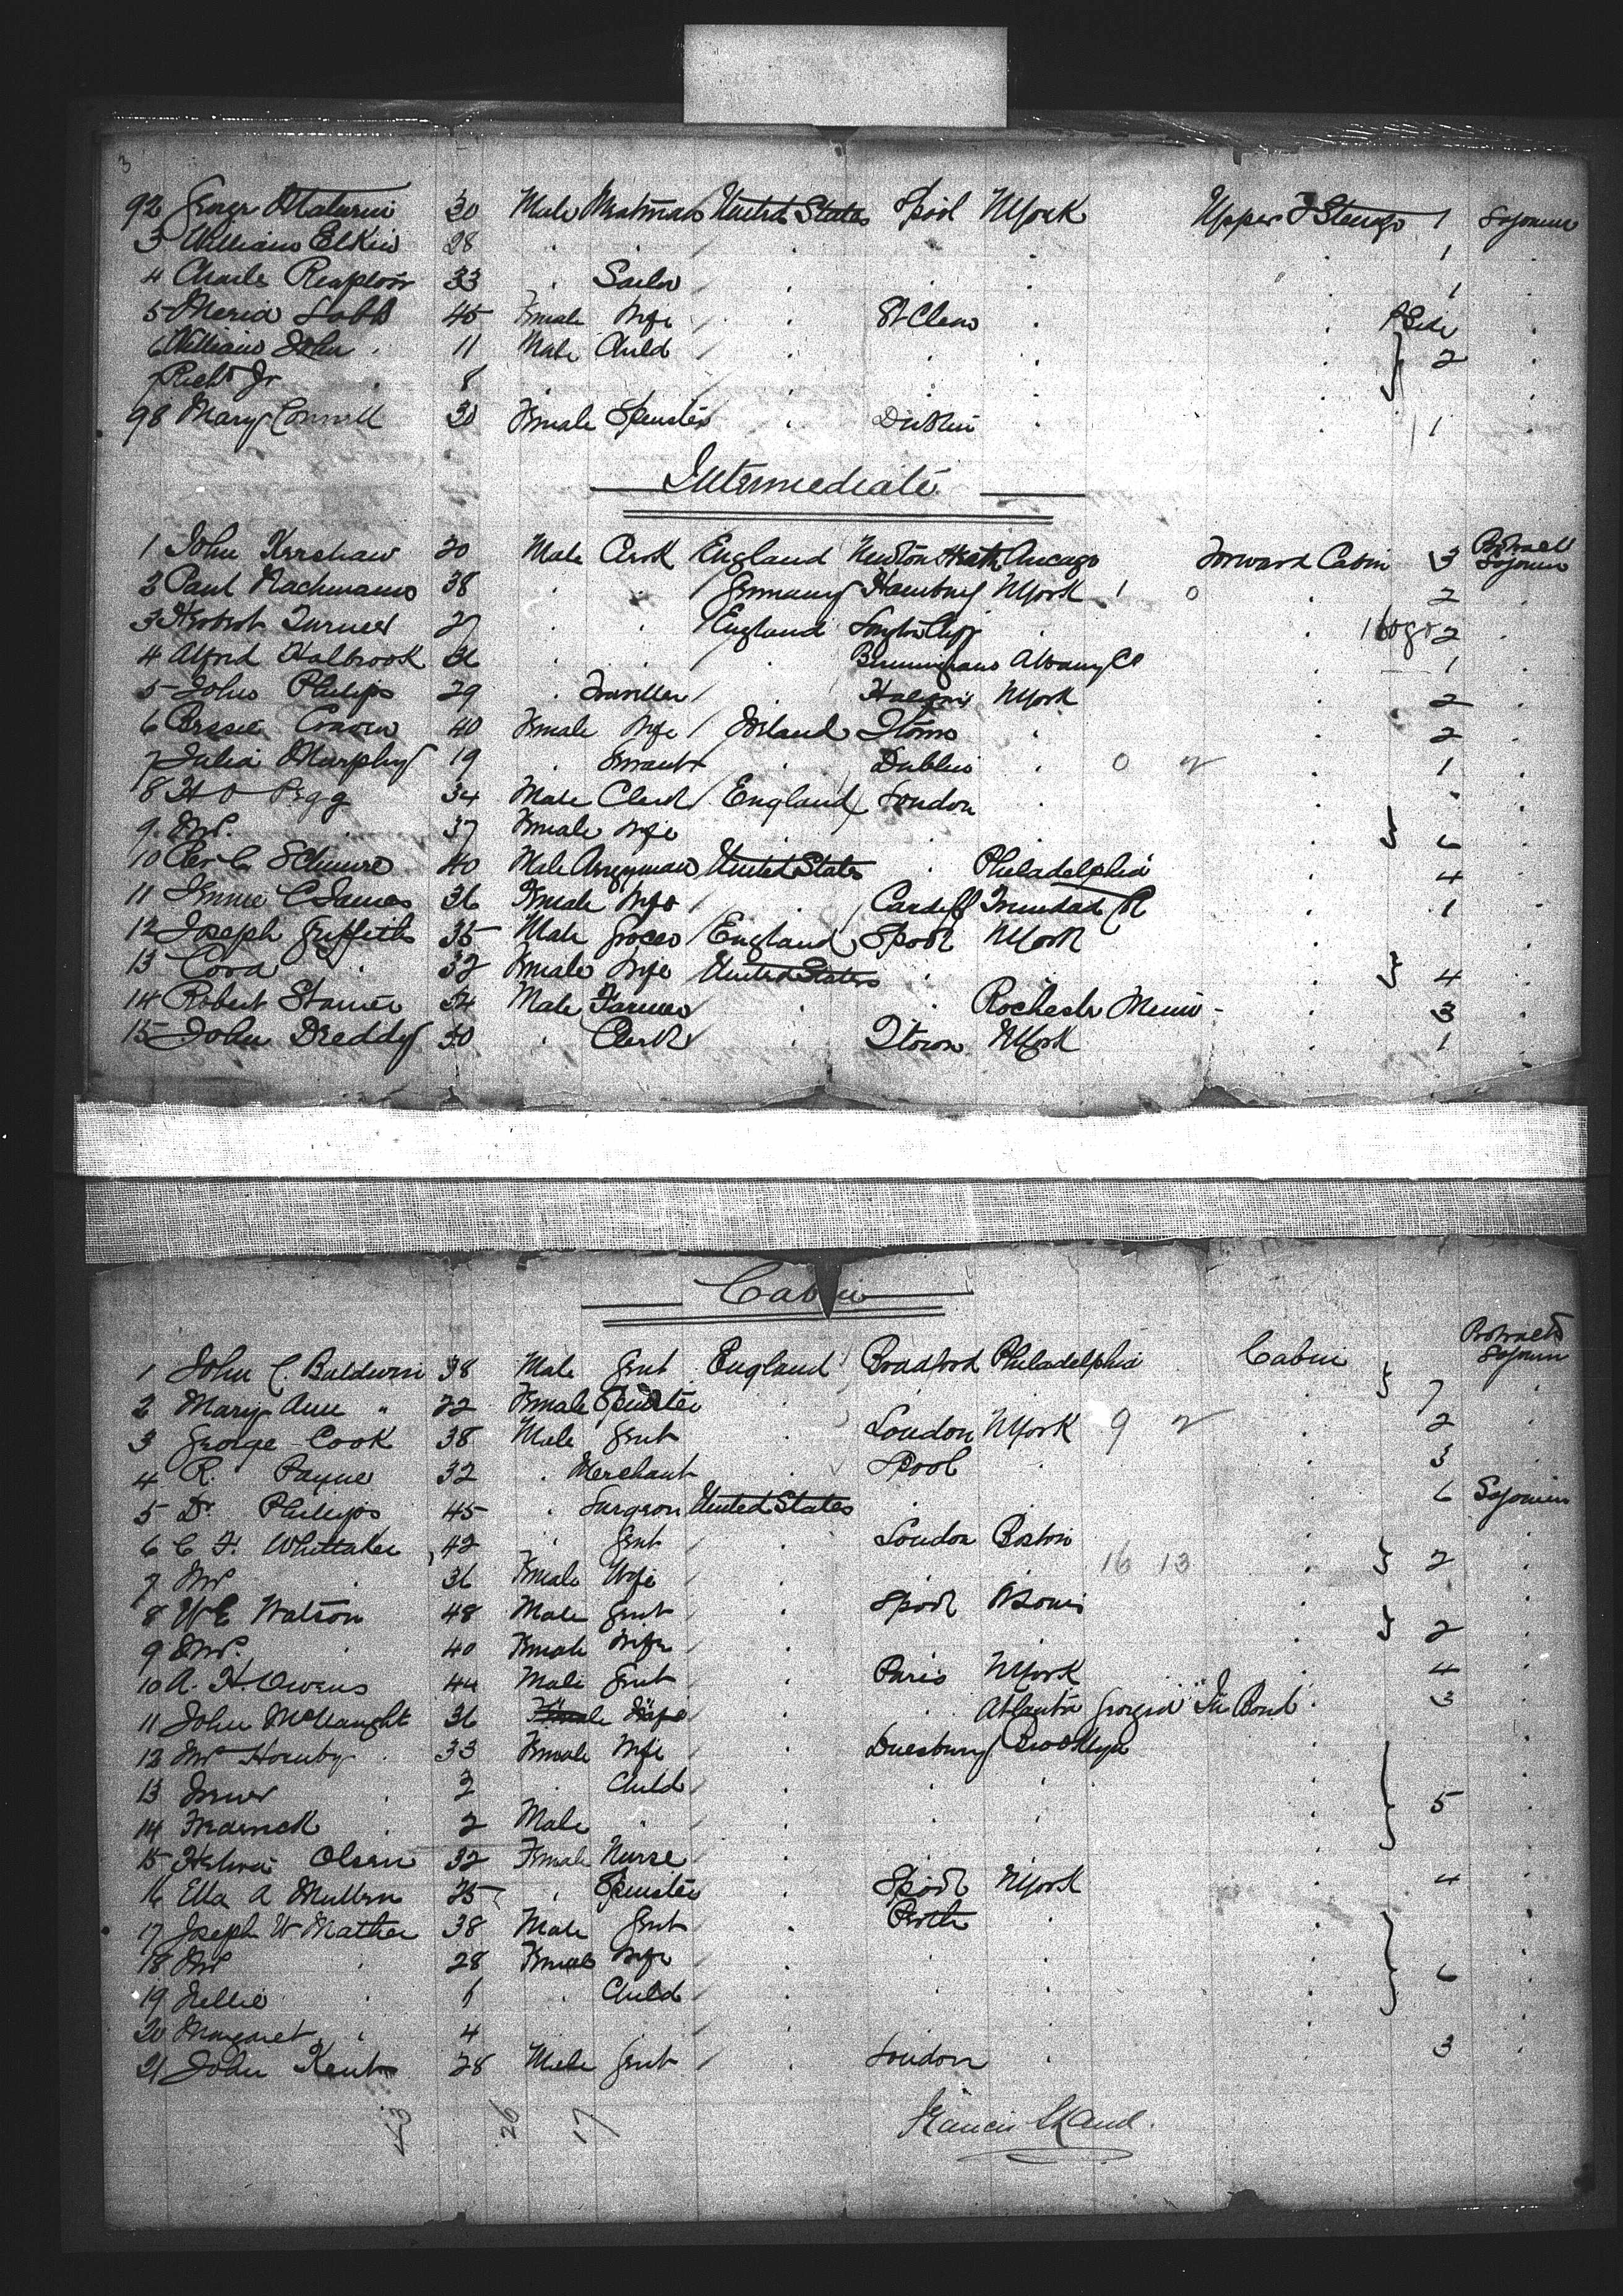 3
92 George 30 Male United States Lpool NYork Upper F Steerge 1 Sojourn
3 William Elkin 28 . . . . . . 1
4 Charles 33 . Sailor . . . . 1
5 Maria Lobb 45 Female Wife . St Clear . .
6 William John . 11 Male Child . . . . } 2
7 Richd Jr . 8 . . . . .
98 Mary Connell 30 Female Spinster . Dublin . . 1
Intermediate
1 John Kershaw 20 Male Clerk England Newton Heath Chicago Forward Cabin 3 Protracted Sojourn
2 Paul Nachmann 38 . . Germany Hamburg NYork 1 0 . 2 .
3 Herbert Turner 27 . . England . . 2 .
4 Alfred Halbrook 36 . . . Birmingham Albany . 1 .
5 John Philips 29 . Traveller . NYork . 2 .
6 Bessie 40 Female Wife Ireland Qtown . . 2 .
7 Julia Murphy 19 . Servant . Dublin . 0 2 . 1 .
8 H O Pegg 34 Male Clerk England London . . .
9 Mrs. . 37 Female Wife } 6 .
10 Rev C 40 Male Clergyman United States . Philadelphia . 4 .
11 Jennie C James 36 Female Wife . Cardiff Trinidad . 1 .
12 Joseph Griffiths 35 Male Grocer England Lpool NYork . .
13 Cora . 32 Female Wife United States . . . } 4 .
14 Robert 54 Male Farmer . . Rochester Minn . 3 .
15 John Dreddy 50 . Clerk . Qtown NYork . 1 .
Cabin
1 John C. Baldwin 38 Male Gent England Bradford Philadelphia Cabin Protracted Sojourn
2 Mary Ann " 22 Female Spinster . . . . } 7 .
3 George Cook 38 Male Gent . London NYork 9 2 . 2 .
4 R. Payne 32 . Merchant . Lpool . . 3 .
5 Dr Philips 45 . Surgeon United States . . . 6 Sojourn
6 C F. Whittaker 42 . Gent . London Boston
7 Mrs . 36 Female Wife . 16 13 . } 2 .
8 W E Watson 48 Male Gent . Lpool . .
9 Mrs. . 40 Female Wife . . . . } 2 .
10 A. H. Owens 44 Male Gent . Paris NYork . 4 .
11 John McNaught 36 . . Atlanta Georgia In Bond . 3 .
12 Mrs Hornby . 33 Female Wife . Brooklyn . .
13 . . Child . . . .
14 Frederick . 2 Male . . . . . } 5 .
15 Olsen 32 Female Nurse . . . . .
16 Ella A Mullen 25 . Spinster . Lpool NYork . 4 .
17 Joseph W Mather 38 Male Gent . Perth . . .
18 Mrs . 28 Female Wife . . . . } 6 .
19 Nellie . . Child . . . . .
20 Margaret . 4 . . . . . . .
21 John Kent 28 Male Gent . London . . 3 .
26 17